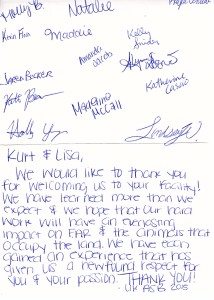 Molly B.
Natalie
Kinn Finn
Madalie
Kelley
Amanda
Loren Becker
Katherine
Kate
Madeline McCall
Holly
Lindsay
Kurt & Lisa,
We would like to thank you
for welcoming us to your facility!
We have learned more than we
expect & we hope that our hard
work will have an everlasting
impact on FAR & the animals that
occupy the land. We have each
gained an experience that has
given us a newfound respect for
you & your passion. THANK YOU!
UK ASB 2015